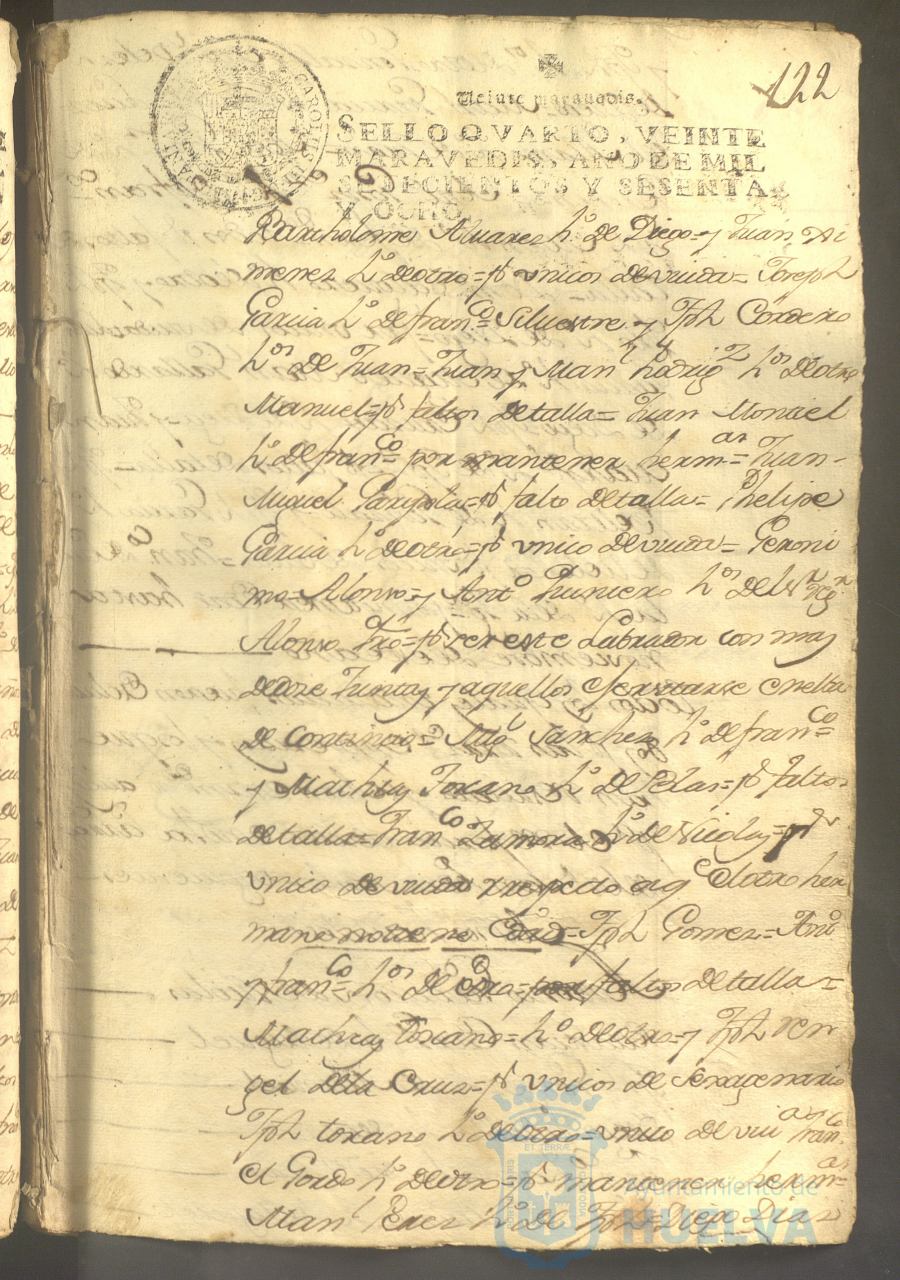 122
Veinte maravedis.
SELLO QVARTO, VEINTE
MARAVEDIS, AÑO DE MIL
SETECIENTOS Y SESENTA
Y OCHO.
CAROLUS III
Bartholome Alvarez hº. de Diego= y Juan Xi
menez hº deotro=pr vnicos deviuda= Joseph
Garcia hº de franco= Silvestre y Jph Cordero
hos de Juan= Juan y Manl Rodrigz hos deotro
Manuel=pr faltos detalla= Juan Moniel
hº. de franco= por mantener hermas= Juan
Miguel =pr falto detalla= Phelipe
Garcia hº deotro=pr vnico deviuda= Geroni
mo Alonso= y Antº hos del
Alonso =pr ser este Labrador con mas
dedoze Juntas y aquellos exercitarse enelta
de continuo= Migl Sanchez hº defranco
y Mathias Toscano hº de Blas=pr faltos
detalla= Franco Zamora hº de Nicolas=pr
vnico de viuda y respecto aq elotro her
mano notiene = Jph Gomez= Antº
y franco= hos de otro= faltos detalla=
Mathias toscano= hº deotro= y Jph
gel dela Cruz=pr vnicos de Sexagenario
Jph toscano hº deotro= vnico de viuda franco
el Gordo hº deotro=pr mantener hermas=
Manl Perez hº de Jph= Diego Diaz
Ayuntamiento de
HUELVA